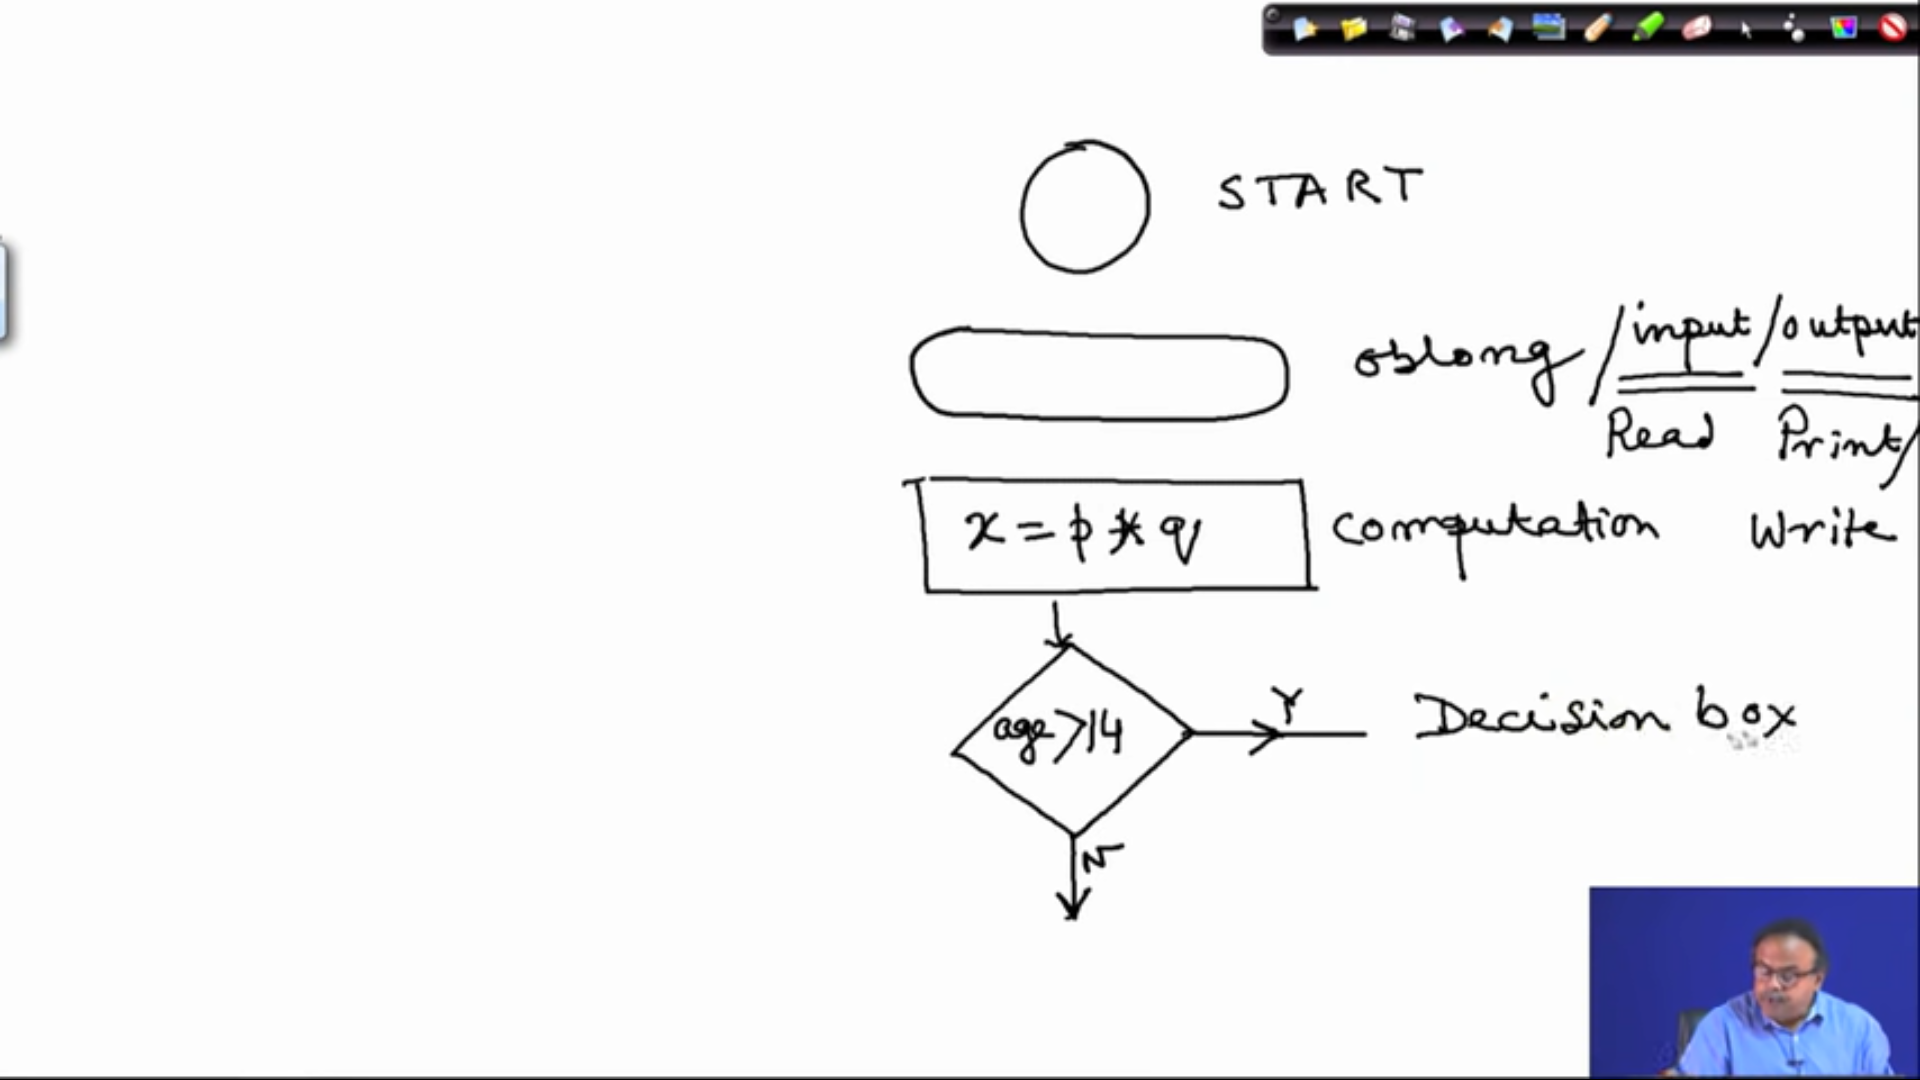 START
oblong / input / output
Read Print /
x = p * q computation Write
age > 14 Y Decision box
N